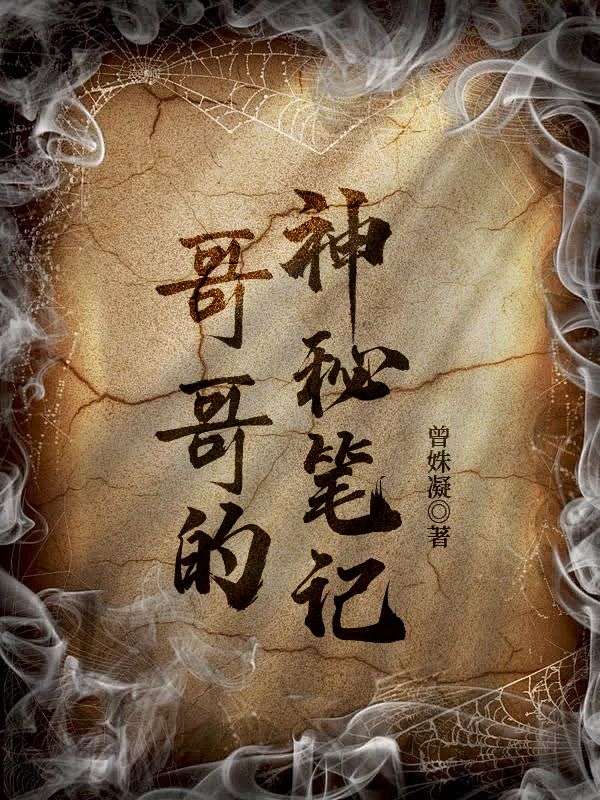 哥哥的
神秘笔记
曾姝凝◎著